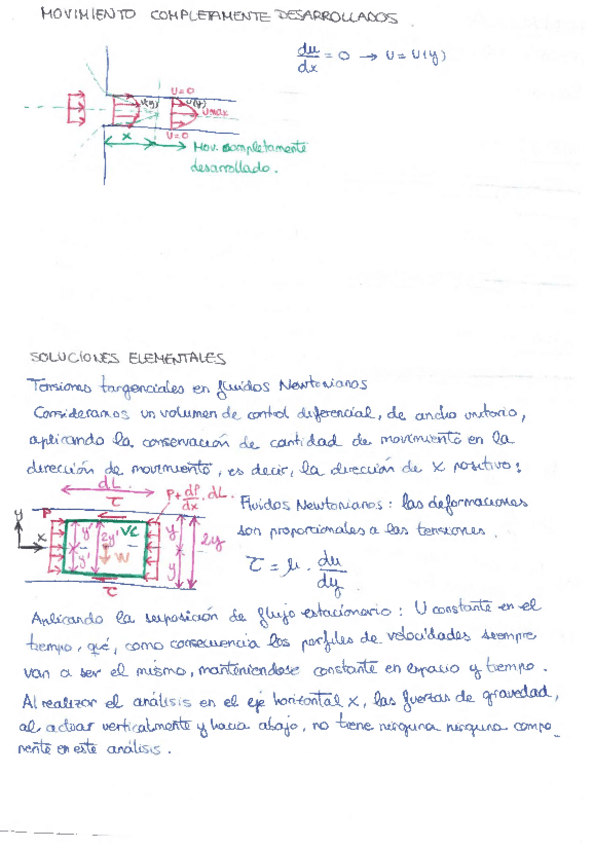 MOVIMIENTO COMPLETAMENTE DESARROLLADOS.
du/dx = 0 → U = U(y)
U=0
U(y) U(y) Umax
U=0
x
Mov. completamente
desarrollado.
SOLUCIONES ELEMENTALES
Torsiones tangenciales en fluidos Newtonianos
Consideramos un volumen de control diferencial, de ancho unitario,
aplicando la conservación de cantidad de movimiento en la
dirección de movimiento, es decir, la dirección de x positivo:
dL
τ
P+dP/dx.dL.
Fluidos Newtonianos: las deformaciones
son proporcionales a las tensiones.
y P y' 2y' VC y 2y
x y' W y
τ
τ = μ . du/dy
Aplicando la suposición de flujo estacionario: U constante en el
tiempo, qué, como consecuencia los perfiles de velocidades siempre
van a ser el mismo, manteniendose constante en espacio y tiempo.
Al realizar el análisis en el eje horizontal x, las fuerzas de gravedad,
al actuar verticalmente y hacia abajo, no tiene ninguna ninguna compo_
nente en este análisis.